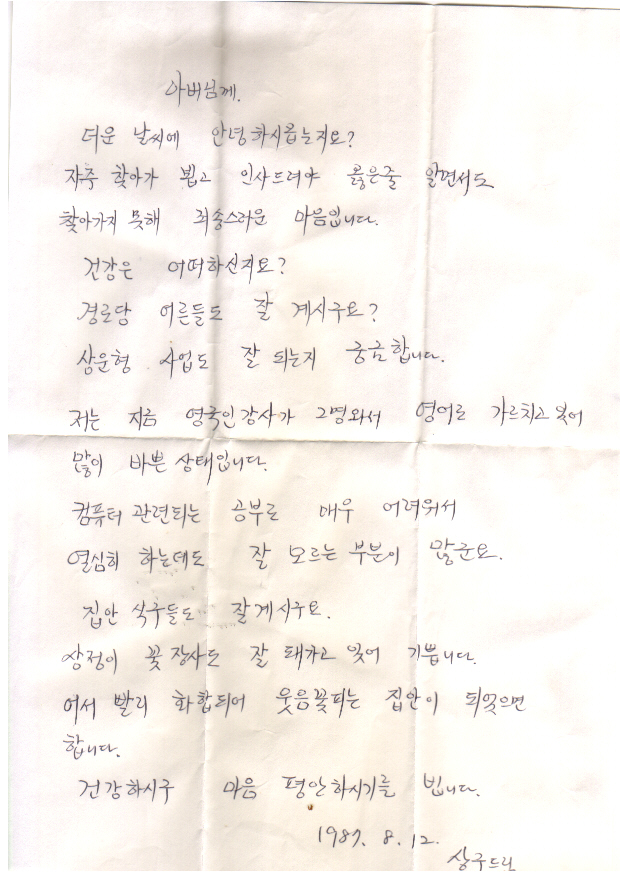 아버님께.
더운 날씨에 안녕하시옵는지요?
자주 찾아가 뵙고 인사드려야 옳은줄 알면서도
찾아가지 못해 죄송스러운 마음입니다.
건강은 어떠하신지요?
경로당 어른들도 잘 계시구요?
상운형 사업도 잘 되는지 궁금합니다.
저는 지금 영국인강사가 2명와서 영어로 가르치고 있어
많이 바쁜 상태입니다.
컴퓨터 관련되는 공부로 매우 어려워서
열심히 하는데도 잘 모르는 부분이 많군요.
집안 식구들도 잘계시구요.
상정이 꽃장사도 잘 돼가고 있어 기쁩니다.
어서 빨리 화합되어 웃음꽃피는 집안이 되었으면
합니다.
건강하시구 마음 평안하시기를 빕니다.
1987. 8. 12.
상구드림